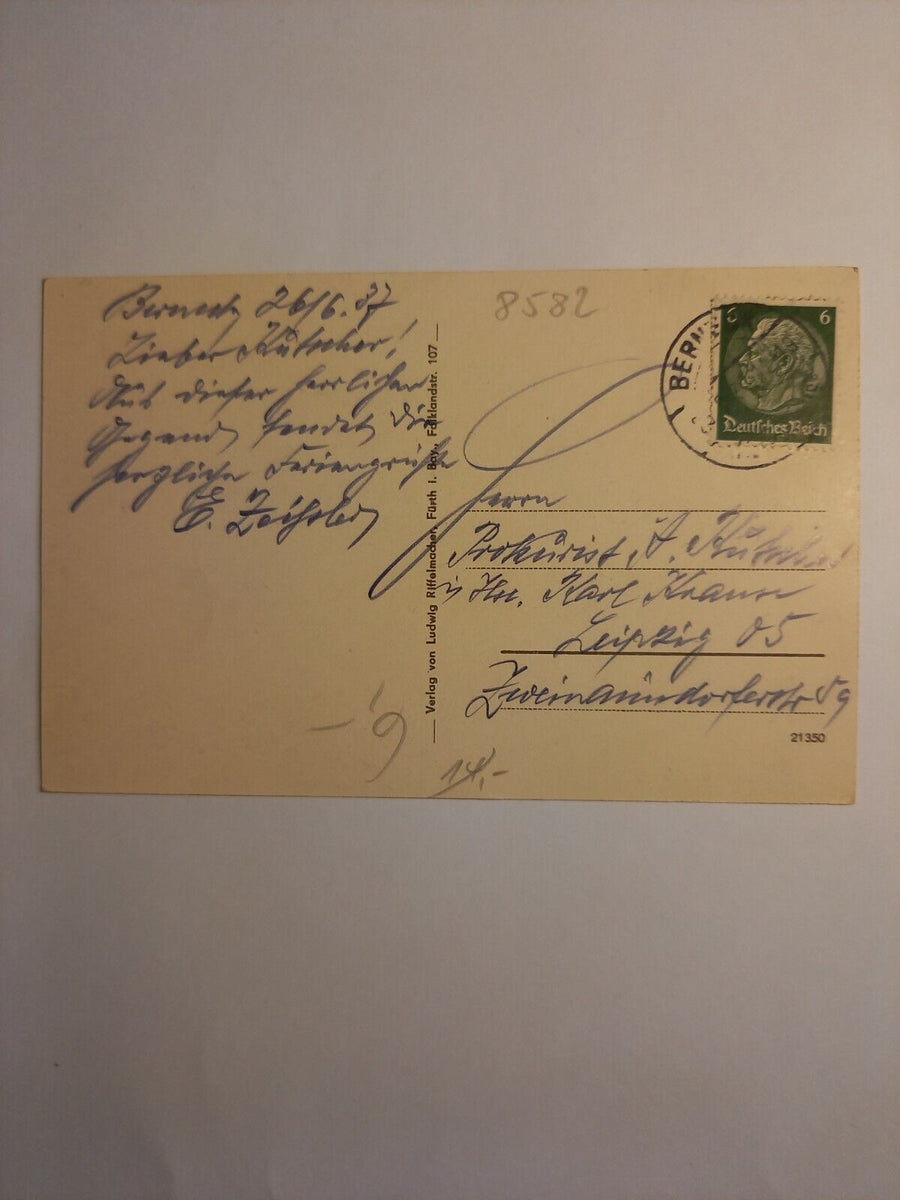 Berneck, 26/6. 37
Lieber Kutscher!
Aus dieser herrlichen
Gegend sendet Dir
herzliche Feriengrüße
E.
8582
BERN
6 6
Deutsches Reich
Verlag von Ludwig Riffelmacher, Fürth i. Bay., Falklandstr. 107
Herrn
Prokurist A. Kutscher
Karl Krause
Leipzig O5
Zweinaundorferstr 59
21350